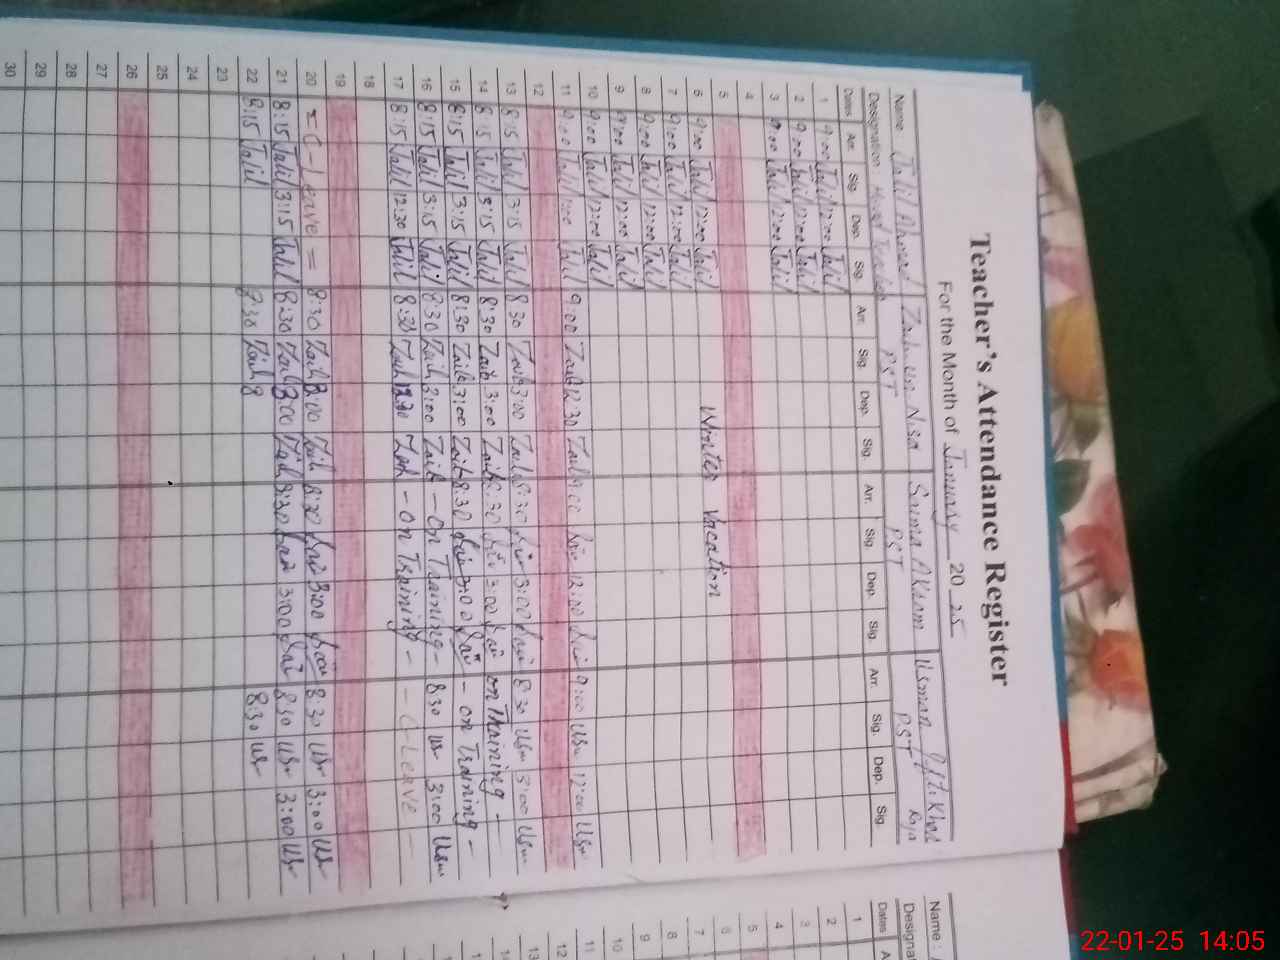 Teacher's Attendance Register
For the Month of January 20 25
Name : Jalil Ahmad Zaib un Nisa Saima Akram Usman
Designation : Head Teacher PST PST PST
Dates Arr. Sig. Dep. Sig. Arr. Sig. Dep. Sig. Arr. Sig. Dep. Sig. Arr. Sig. Dep. Sig.
1 9:00 Jalil 12:00 Jalil
2 9:00 Jalil 12:00 Jalil
3 9:00 Jalil 12:00 Jalil
4
5
6 9:00 Jalil 12:00 Jalil Winter Vacation
7 9:00 Jalil 12:00 Jalil
8 9:00 Jalil 12:00 Jalil
9 9:00 Jalil 12:00 Jalil
10 9:00 Jalil 12:00 Jalil
11 9:00 Jalil 1:00 Jalil 9:00 Zaib 12:30 Zaib 12:00 9:00 Usm 12:00 Usm
12
13 8:15 Jalil 3:15 Jalil 8:30 Zaib 3:00 Zaib 8:30 3:00 8:30 Usm 3:00 Usm
14 8:15 Jalil 3:15 Jalil 8:30 Zaib 3:00 Zaib 8:30 3:00 on Training -
15 8:15 Jalil 3:15 Jalil 8:30 Zaib 3:00 Zaib 8:30 3:00 - on Training -
16 8:15 Jalil 3:15 Jalil 8:30 Zaib 3:00 Zaib - On Training - 8:30 Us 3:00 Usm
17 8:15 Jalil 12:30 Jalil 8:30 Zaib 12:30 Zaib - On Training - - C-Leave -
18
19
20 = C-Leave = 8:30 Zaib 3:00 Zaib 8:30 3:00 8:30 Us 3:00 Us
21 8:15 Jalil 3:15 Jalil 8:30 Zaib 3:00 Zaib 8:30 3:00 8:30 Us 3:00 Us
22 8:15 Jalil 8:30 Zaib 8 8:30 Us
23
24
25
26
27
28
29
30
Name :
Designat
Dates A
1
2
3
4
5
6
7
8
9
10
11
12
13
22-01-25 14:05